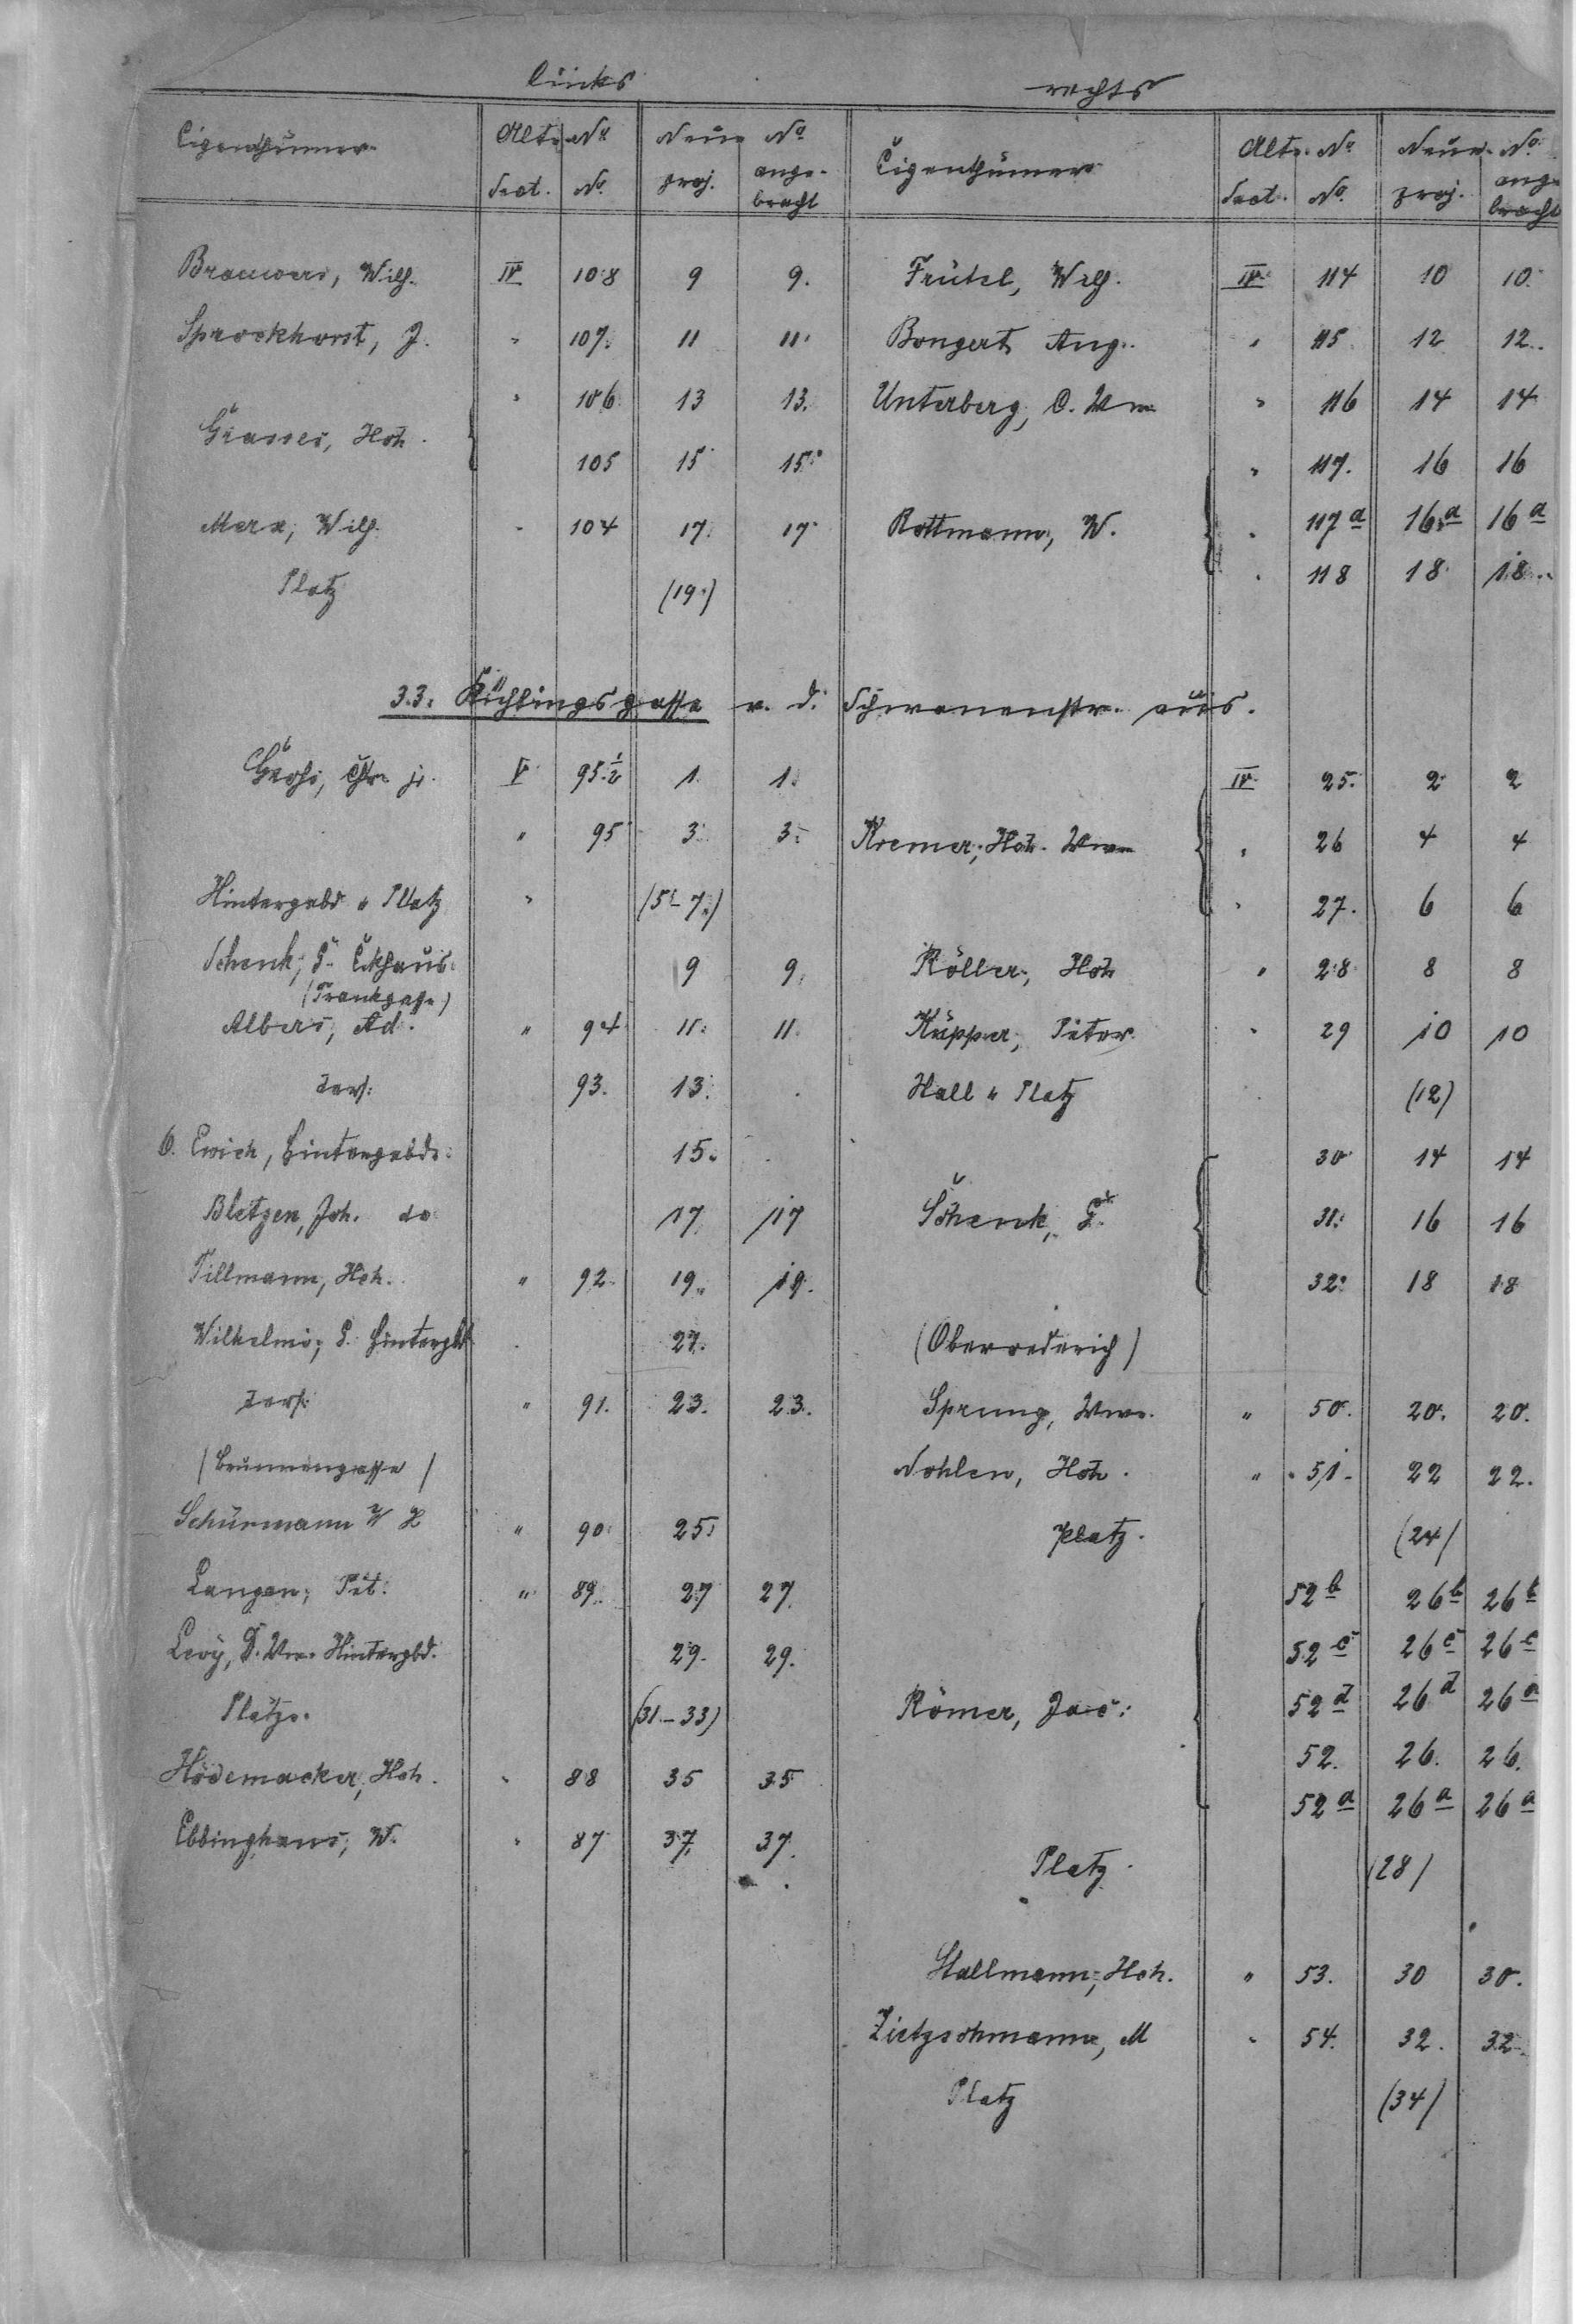 links rechts
Eigenthümer Alte No Neue No Eigenthümer Alte No Neue No
Sect. No. proj. angebracht Sect. No. proj. angebracht
Brauwers, Wilh. IV 108 9 9. Frütel, Wilh. IV 114 10 10.
Sprockhorst, J. " 107. 11 11. Bongert Aug. " 115 12 12.
" 106 13 13. Unterberg, C. Wwe " 116 14 14
Grasses, Hch. 105 15 15. " 117. 16 16
Merx, Wilh. " 104 17. 17 Rottmann, W. " 117a 16a 16a
Platz (19.) " 118 18 18.
33. Küchlingsgasse v. d. Schwanenstr. aus.
Grohs, Chr. jr. V 95 1/2 1. 1. IV 25. 2 2
" 95 3. 3. Kremer, Hch. Wwe " 26 4 4
Hintergebd u Platz " (5-7.) " 27. 6 6
Schenk, Eckhaus 9 9. Röller, Hch " 28 8 8
(Frankgasse)
Albers, Ad. " 94 11. 11. Küpper, Peter " 29 10 10
Ders. 93. 13. Hall u Platz (12)
Ewich, Hintergebde. 15. 30 14 14
Bletgen, Joh. do 17. 17 Schenk, 31. 16 16
Tillmann, Hch. " 92. 19. 19. 32. 18 18
Wilhelmi, Hintergbd 27. (Oberrederich)
Ders. " 91. 23. 23. Sprung, Wwe. " 50. 20. 20.
(Brunnengasse) Nohlen, Hch. " 51. 22 22.
Schürmann W H " 90 25. Platz. (24)
Langen, Pet. " 89. 27 27. 52b 26b 26b
Levy, D. Wwe. Hintergbd. 29. 29. 52c 26c 26c
Plätze. (31-33) Römer, Jac: 52d 26d 26d
52. 26. 26.
Hödemacker, Hch. " 88 35 35 52a 26a 26a
Ebbinghaus, W. " 87 37. 37. Platz. (28)
Stallmann, Hch. " 53. 30 30.
Zietzschmann, M " 54. 32. 32.
Platz (34)